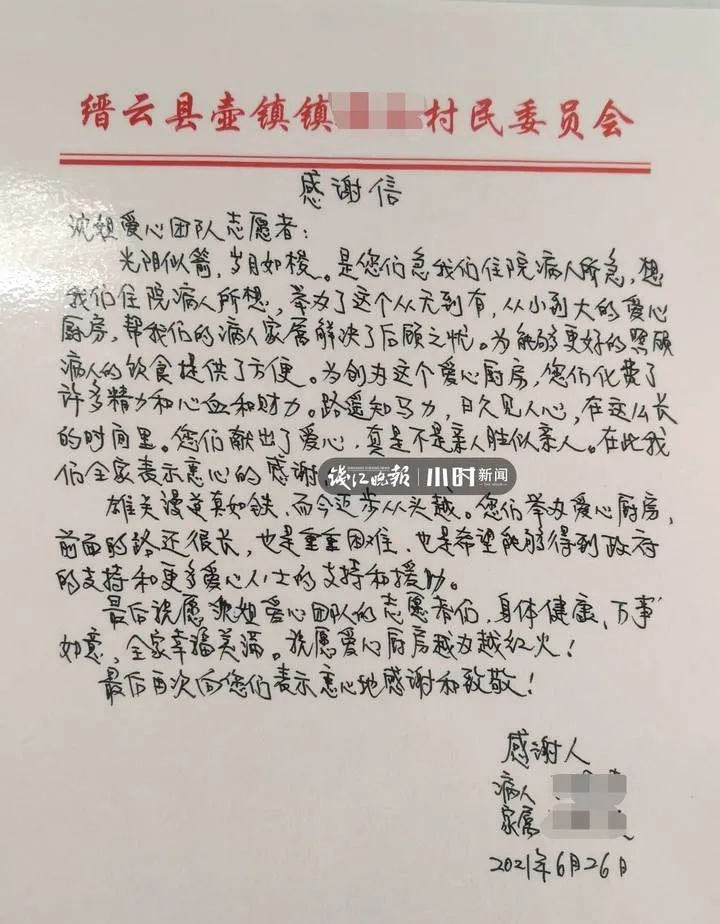 缙云县壶镇镇 村民委员会
感谢信
沈姐爱心团队志愿者：
光阴似箭，岁月如梭。是您们急我们住院病人所急，想
我们住院病人所想，举办了这个从无到有，从小到大的爱心
厨房，帮我们的病人家属解决了后顾之忧。为能够更好的照顾
病人的饮食提供了方便。为创办这个爱心厨房，您们化费了
许多精力和心血和财力。路遥知马力，日久见人心，在这么长
的时间里。您们献出了爱心，真是不是亲人胜似亲人。在此我
们全家表示衷心的感谢
钱江晚报 小时新闻
雄关漫道真如铁，而今迈步从头越。您们举办爱心厨房，
前面的路还很长，也是重重困难，也是希望能够得到政府
的支持和更多爱心人士的支持和援助。
最后祝愿沈姐爱心团队的志愿者们，身体健康，万事
如意，全家幸福美满。祝愿爱心厨房越办越红火！
最后再次向您们表示衷心地感谢和致敬！
感谢人
病人
家属
2021年6月26日